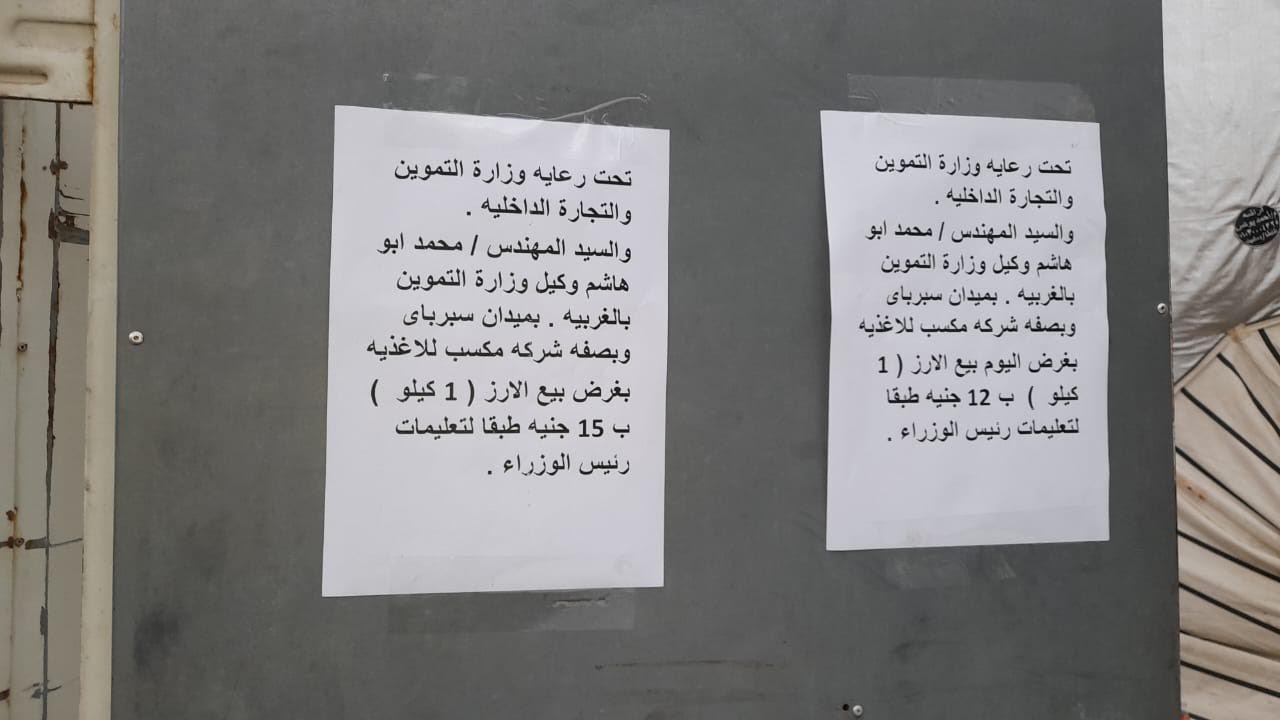 تحت رعايه وزارة التموين
والتجارة الداخليه .
والسيد المهندس / محمد ابو
هاشم وكيل وزارة التموين
بالغربيه . بميدان سبرباى
وبصفه شركه مكسب للاغذيه
بغرض اليوم بيع الارز ( 1
كيلو ) ب 12 جنيه طبقا
لتعليمات رئيس الوزراء .
تحت رعايه وزارة التموين
والتجارة الداخليه .
والسيد المهندس / محمد ابو
هاشم وكيل وزارة التموين
بالغربيه . بميدان سبرباى
وبصفه شركه مكسب للاغذيه
بغرض بيع الارز ( 1 كيلو )
ب 15 جنيه طبقا لتعليمات
رئيس الوزراء .